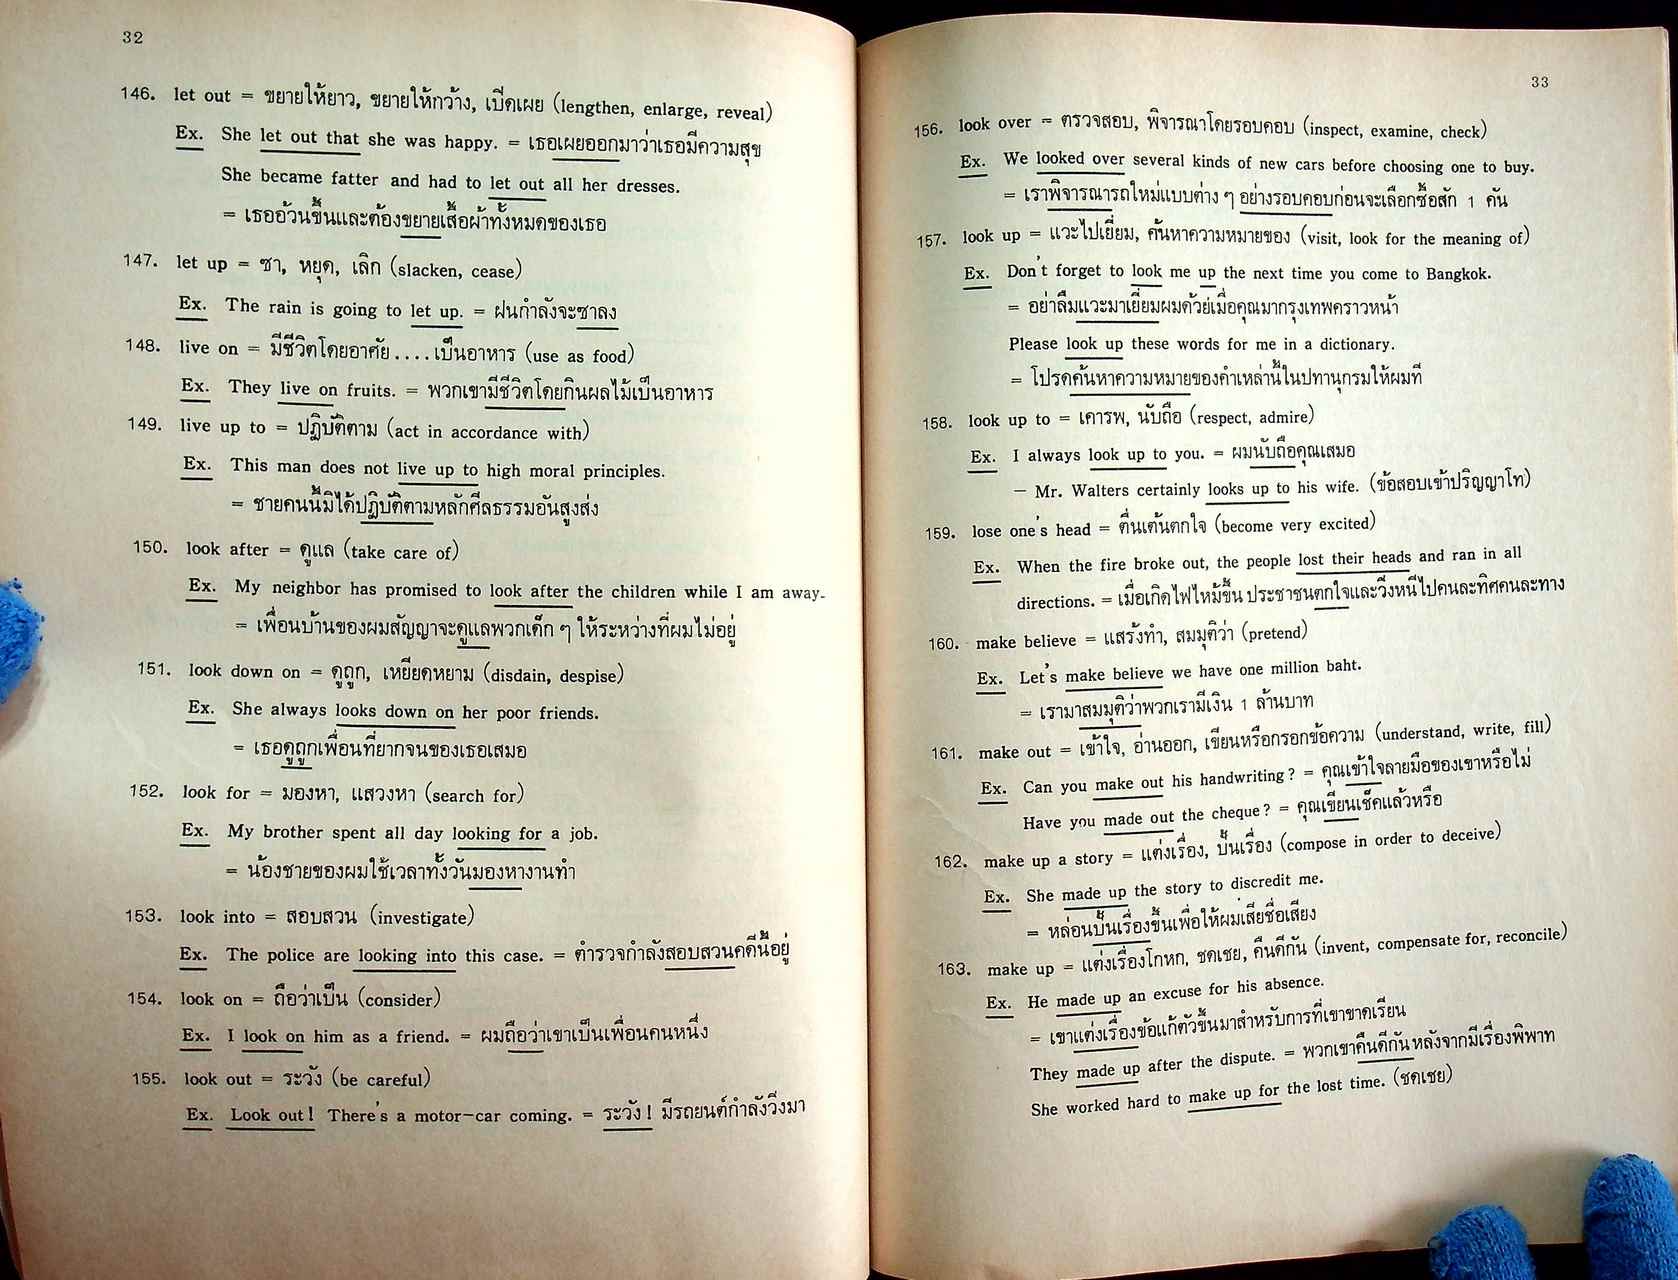 32
146. let out = ขยายให้ยาว, ขยายให้กว้าง, เปิดเผย (lengthen, enlarge, reveal)
Ex. She let out that she was happy. = เธอเผยออกมาว่าเธอมีความสุข
She became fatter and had to let out all her dresses.
= เธออ้วนขึ้นและต้องขยายเสื้อผ้าทั้งหมดของเธอ
147. let up = ซา, หยุด, เลิก (slacken, cease)
Ex. The rain is going to let up. = ฝนกำลังจะซาลง
148. live on = มีชีวิตโดยอาศัย....เป็นอาหาร (use as food)
Ex. They live on fruits. = พวกเขามีชีวิตโดยกินผลไม้เป็นอาหาร
149. live up to = ปฏิบัติตาม (act in accordance with)
Ex. This man does not live up to high moral principles.
= ชายคนนี้มิได้ปฏิบัติตามหลักศีลธรรมอันสูงส่ง
150. look after = ดูแล (take care of)
Ex. My neighbor has promised to look after the children while I am away.
= เพื่อนบ้านของผมสัญญาจะดูแลพวกเด็ก ๆ ให้ระหว่างที่ผมไม่อยู่
151. look down on = ดูถูก, เหยียดหยาม (disdain, despise)
Ex. She always looks down on her poor friends.
= เธอดูถูกเพื่อนที่ยากจนของเธอเสมอ
152. look for = มองหา, แสวงหา (search for)
Ex. My brother spent all day looking for a job.
= น้องชายของผมใช้เวลาทั้งวันมองหางานทำ
153. look into = สอบสวน (investigate)
Ex. The police are looking into this case. = ตำรวจกำลังสอบสวนคดีนี้อยู่
154. look on = ถือว่าเป็น (consider)
Ex. I look on him as a friend. = ผมถือว่าเขาเป็นเพื่อนคนหนึ่ง
155. look out = ระวัง (be careful)
Ex. Look out! There's a motor-car coming. = ระวัง! มีรถยนต์กำลังวิ่งมา
33
156. look over = ตรวจสอบ, พิจารณาโดยรอบคอบ (inspect, examine, check)
Ex. We looked over several kinds of new cars before choosing one to buy.
= เราพิจารณารถใหม่แบบต่าง ๆ อย่างรอบคอบก่อนจะเลือกซื้อสัก 1 คัน
157. look up = แวะไปเยี่ยม, ค้นหาความหมายของ (visit, look for the meaning of)
Ex. Don't forget to look me up the next time you come to Bangkok.
= อย่าลืมแวะมาเยี่ยมผมด้วย์เมื่อคุณมากรุงเทพคราวหน้า
Please look up these words for me in a dictionary.
= โปรดค้นหาความหมายของคำเหล่านี้ในปทานุกรมให้ผมที
158. look up to = เคารพ, นับถือ (respect, admire)
Ex. I always look up to you. = ผมนับถือคุณเสมอ
— Mr. Walters certainly looks up to his wife. (ข้อสอบเข้าปริญญาโท)
159. lose one's head = ตื่นเต้นตกใจ (become very excited)
Ex. When the fire broke out, the people lost their heads and ran in all
directions. = เมื่อเกิดไฟไหม้ขึ้น ประชาชนตกใจและวิ่งหนีไปคนละทิศคนละทาง
160. make believe = แสร้งทำ, สมมุติว่า (pretend)
Ex. Let's make believe we have one million baht.
= เรามาสมมุติว่าพวกเรามีเงิน 1 ล้านบาท
161. make out = เข้าใจ, อ่านออก, เขียนหรือกรอกข้อความ (understand, write, fill)
Ex. Can you make out his handwriting? = คุณเข้าใจลายมือของเขาหรือไม่
Have you made out the cheque? = คุณเขียนเช็คแล้วหรือ
162. make up a story = แต่งเรื่อง, ปั้นเรื่อง (compose in order to deceive)
Ex. She made up the story to discredit me.
= หล่อนปั้นเรื่องขึ้นเพื่อให้ผมเสียชื่อเสียง
163. make up = แต่งเรื่องโกหก, ชดเชย, คืนดีกัน (invent, compensate for, reconcile)
Ex. He made up an excuse for his absence.
= เขาแต่งเรื่องข้อแก้ตัวขึ้นมาสำหรับการที่เขาขาดเรียน
They made up after the dispute. = พวกเขาคืนดีกันหลังจากมีเรื่องพิพาท
She worked hard to make up for the lost time. (ชดเชย)